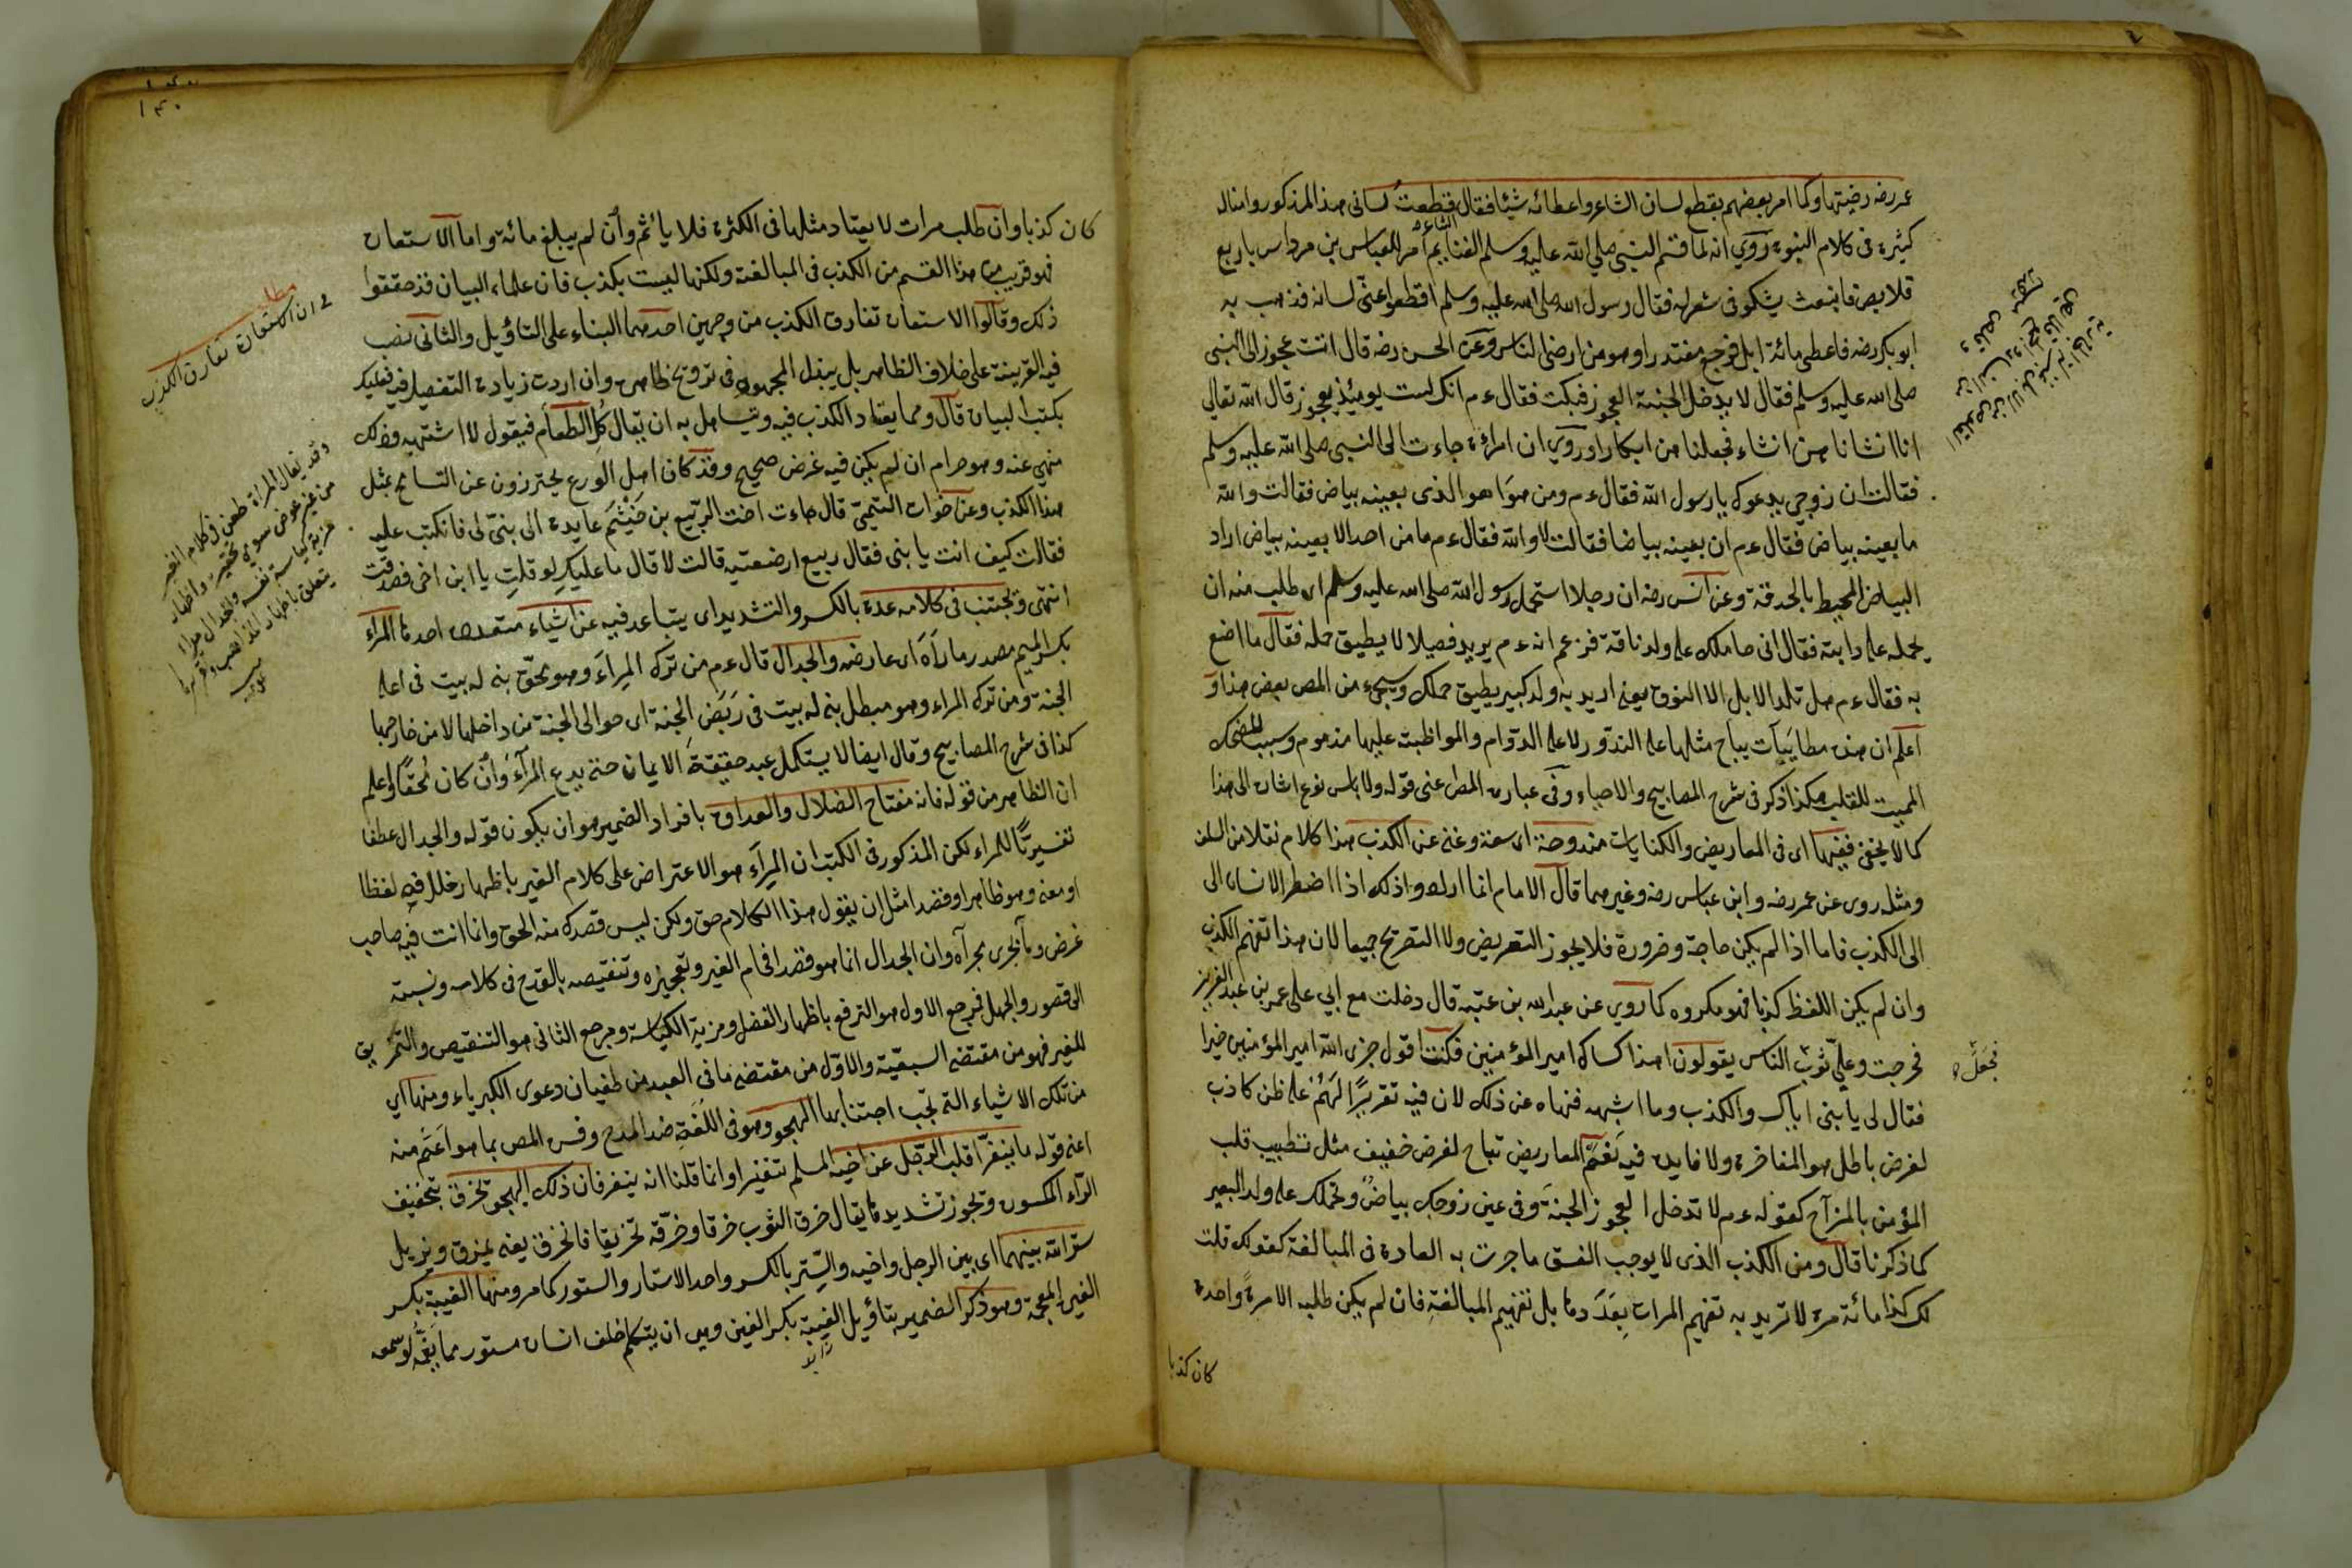 عمر رضه رضيتها وكما امر بعضهم بقطع لسان الشاعر واعطائه شيئا فقال قطعت لسانى هذا المذكور وامثاله
كثيرة فى كلام النبوة روى انه لما قسم النبى صلى الله عليه وسلم الغنايم امر للعباس بن مرداس باربع
قلايص فانبعث يشكو فى شعر له فقال رسول الله صلى الله عليه وسلم اقطعوا عنى لسانه فذهب به
ابو بكر رضه فاعطى مائة ابل فرجع مقتدرا وهو من ارضى الناس وعن الحسن رضه قال اتت عجوز الى النبى
صلى الله عليه وسلم فقال لا يدخل الجنة العجوز فبكت فقال ءم انك لست يومئذ بعجوز قال الله تعالى
انا انشاناهن انشاء فجعلناهن ابكارا وروى ان امرأة جاءت الى النبى صلى الله عليه وسلم
فقالت ان زوجى يدعوك يا رسول الله فقال ءم ومن هو اهو الذى بعينه بياض فقالت والله
ما بعينه بياض فقال ءم ان بعينه بياضا فقالت لا والله فقال ءم ما من احد الا بعينه بياض اراد
البياض المحيط بالحدقة وعن انس رضه ان رجلا استحمل رسول الله صلى الله عليه وسلم اى طلب منه ان
يحمله على دابته فقال انى حاملك على ولد ناقة فزعم انه ءم يريد فصيلا لا يطيق حمله فقال ما اصنع
به فقال ءم هل تلد الابل الا النوق يعنى اريد به ولد كبير يطيق حملك وسيجىء من المص بعض هذا و
اعلم ان هذه مطايبات يباح مثلها على الندور لا على الدوام والمواظبة عليها مذموم وسبب للضحك
المميت للقلب هكذا ذكر فى شرح المصابيح والاحياء وفى عبارة المص اعنى قوله ولا باس نوع اشارة الى هذا
كما لا يخفى ففيها اى فى المعاريض والكنايات مندوحة اى سعة وغنى عن الكذب هذا كلام نقلا من السلف
ومثله روى عن عمر رضه وابن عباس رضه وغيرهما قال الامام انما ارادوا ذلك اذا اضطر الانسان الى
الى الكذب فاما اذا لم يكن حاجة وضرورة فلا يجوز التعريض ولا التصريح جميعا لان هذا تفهم الكذب
وان لم يكن اللفظ كذبا فهو مكروه كما روى عن عبد الله بن عتبه قال دخلت مع ابى على عمر بن عبد العزيز
فخرجت وعلىّ ثوب الناس يقولون اهذا كساك امير المؤمنين فكنت اقول جزى الله امير المؤمنين خيرا
فقال لى يا بنى اياك والكذب وما اشبهه فنهاه عن ذلك لان فيه تقريرا لهم على ظن كاذب
لغرض باطل هو المفاخرة ولا فايدة فيه نعم المعاريض تباح لغرض خفيف مثل تطييب قلب
المؤمن بالمزاح كقوله ءم لا تدخل العجوز الجنة وفى عين زوجك بياض ونحملك على ولد البعير
كما ذكرنا قال ومن الكذب الذى لا يوجب الفسق ما جرت به العادة فى المبالغة كقولك قلت
لك كذا مائة مرة لا تريد به تفهيم المرات بعددها بل تفهيم المبالغة فان لم يكن طلبه الا مرة واحدة
كان كذبا
فجعل
كان كذبا وان طلب مرات لا يعتاد مثلها فى الكثرة فلا يأثم وان لم يبلغ مائة واما الاستعارة
فهو قريب من هذا القسم من الكذب فى المبالغة ولكنها ليست بكذب فان علماء البيان قد حققوا
ذلك وقالوا الاستعارة تفارق الكذب من وجهين احدهما البناء على التأويل والثانى نصب
فيه القرينة على خلاف الظاهر بل يبذل المجهود فى ترويج ظاهره وان اردت زيادة التفصيل فيه فعليك
بكتب البيان قال ومما يعتاد الكذب فيه وتيساهل به ان يقال كل الطعام فيقول لا اشتهيه وذلك
منهى عنه وهو حرام ان لم يكن فيه غرض صحيح وقد كان اهل الورع يحترزون عن التسامح بمثل
هذا الكذب وعن خوات التيمى قال جاءت اخت الربيع بن خيثم عايدة الى بنى لى فانكبت عليه
فقالت كيف انت يا بنى فقال ربيع ارضعتيه قالت لا قال ما عليك لو قلت يا ابن اخى فصدقت
انتهى ويجتنب فى كلامه عدة بالكسر والتشديد اى يتباعد فيه عن اشياء متعددة احدها المراء
بكسر الميم مصدر ماراه اى عارضه والجدال قال ءم من ترك المراء وهو محق بنى له بيت فى اعلى
الجنة ومن ترك المراء وهو مبطل بنى له بيت فى ربض الجنة اى حوالى الجنة من داخلها لا من خارجها
كذا فى شرح المصابيح وقال ايضا لا يستكمل عبد حقيقة الايمان حتى يدع المراء وان كان محقا واعلم
ان الظاهر من قوله فانه مفتاح الضلال والعداوة بافراد الضمير هو ان يكون قوله والجدال عطفا
تفسيريّا للمراء لكن المذكور فى الكتب ان المراء هو الاعتراض على كلام الغير باظهار خلل فيه لفظا
او معنى وهو ظاهر او قصدا مثل ان يقول هذا الكلام حق ولكن ليس قصدك منه الحق وانما انت فيه صاحب
غرض وما يجرى مجراه وان الجدال انما هو قصد افحام الغير وتعجيزه وتنقيصه بالقدح فى كلامه ونسبته
الى قصور والجهل فمرجع الاول هو الترفع باظهار الفضل ومزية الكياسة ومرجع الثانى هو التنقيص والتمزيق
للغير فهو من مقتضى السبعية والاول من مقتضى ما فى العبد من طغيان دعوى الكبرياء ومنها اى
من تلك الاشياء التى تجب اجتنابها الهجو وهو فى اللغة ضد المدح وفسره المص بما هو اعم منه
اعنى قوله ما ينفر قلب الرجل عن اخيه المسلم تنفيرا وانما قلنا انه ينفر فان ذلك الهجو تخرق بتخفيف
الراء المكسورة وتجوز تشديدها يقال خرق الثوب خرقا وخرقه تخريقا فانخرق يعنى يمزق ويزيل
ستر الله بينهما اى بين الرجل واخيه والستر بالكسر واحد الاستار والستور كما مر ومنها الغيبة بكسر
الغين المعجمة وهو ذكر الضمير بتاويل الغيبة بكسر الغين وهى ان يتكلم خلف انسان مستور مما يغمه لو سمعه
مطلب
فى ان الاستعارة تفارق الكذب
وقد يقال المراء طعن فى كلام الغير
من غير غرض سوى تحقير واظهار
مزية كياسة نفسه والجدال مراء
يتعلق باظهار المذاهب وتقريرها
١٤٠